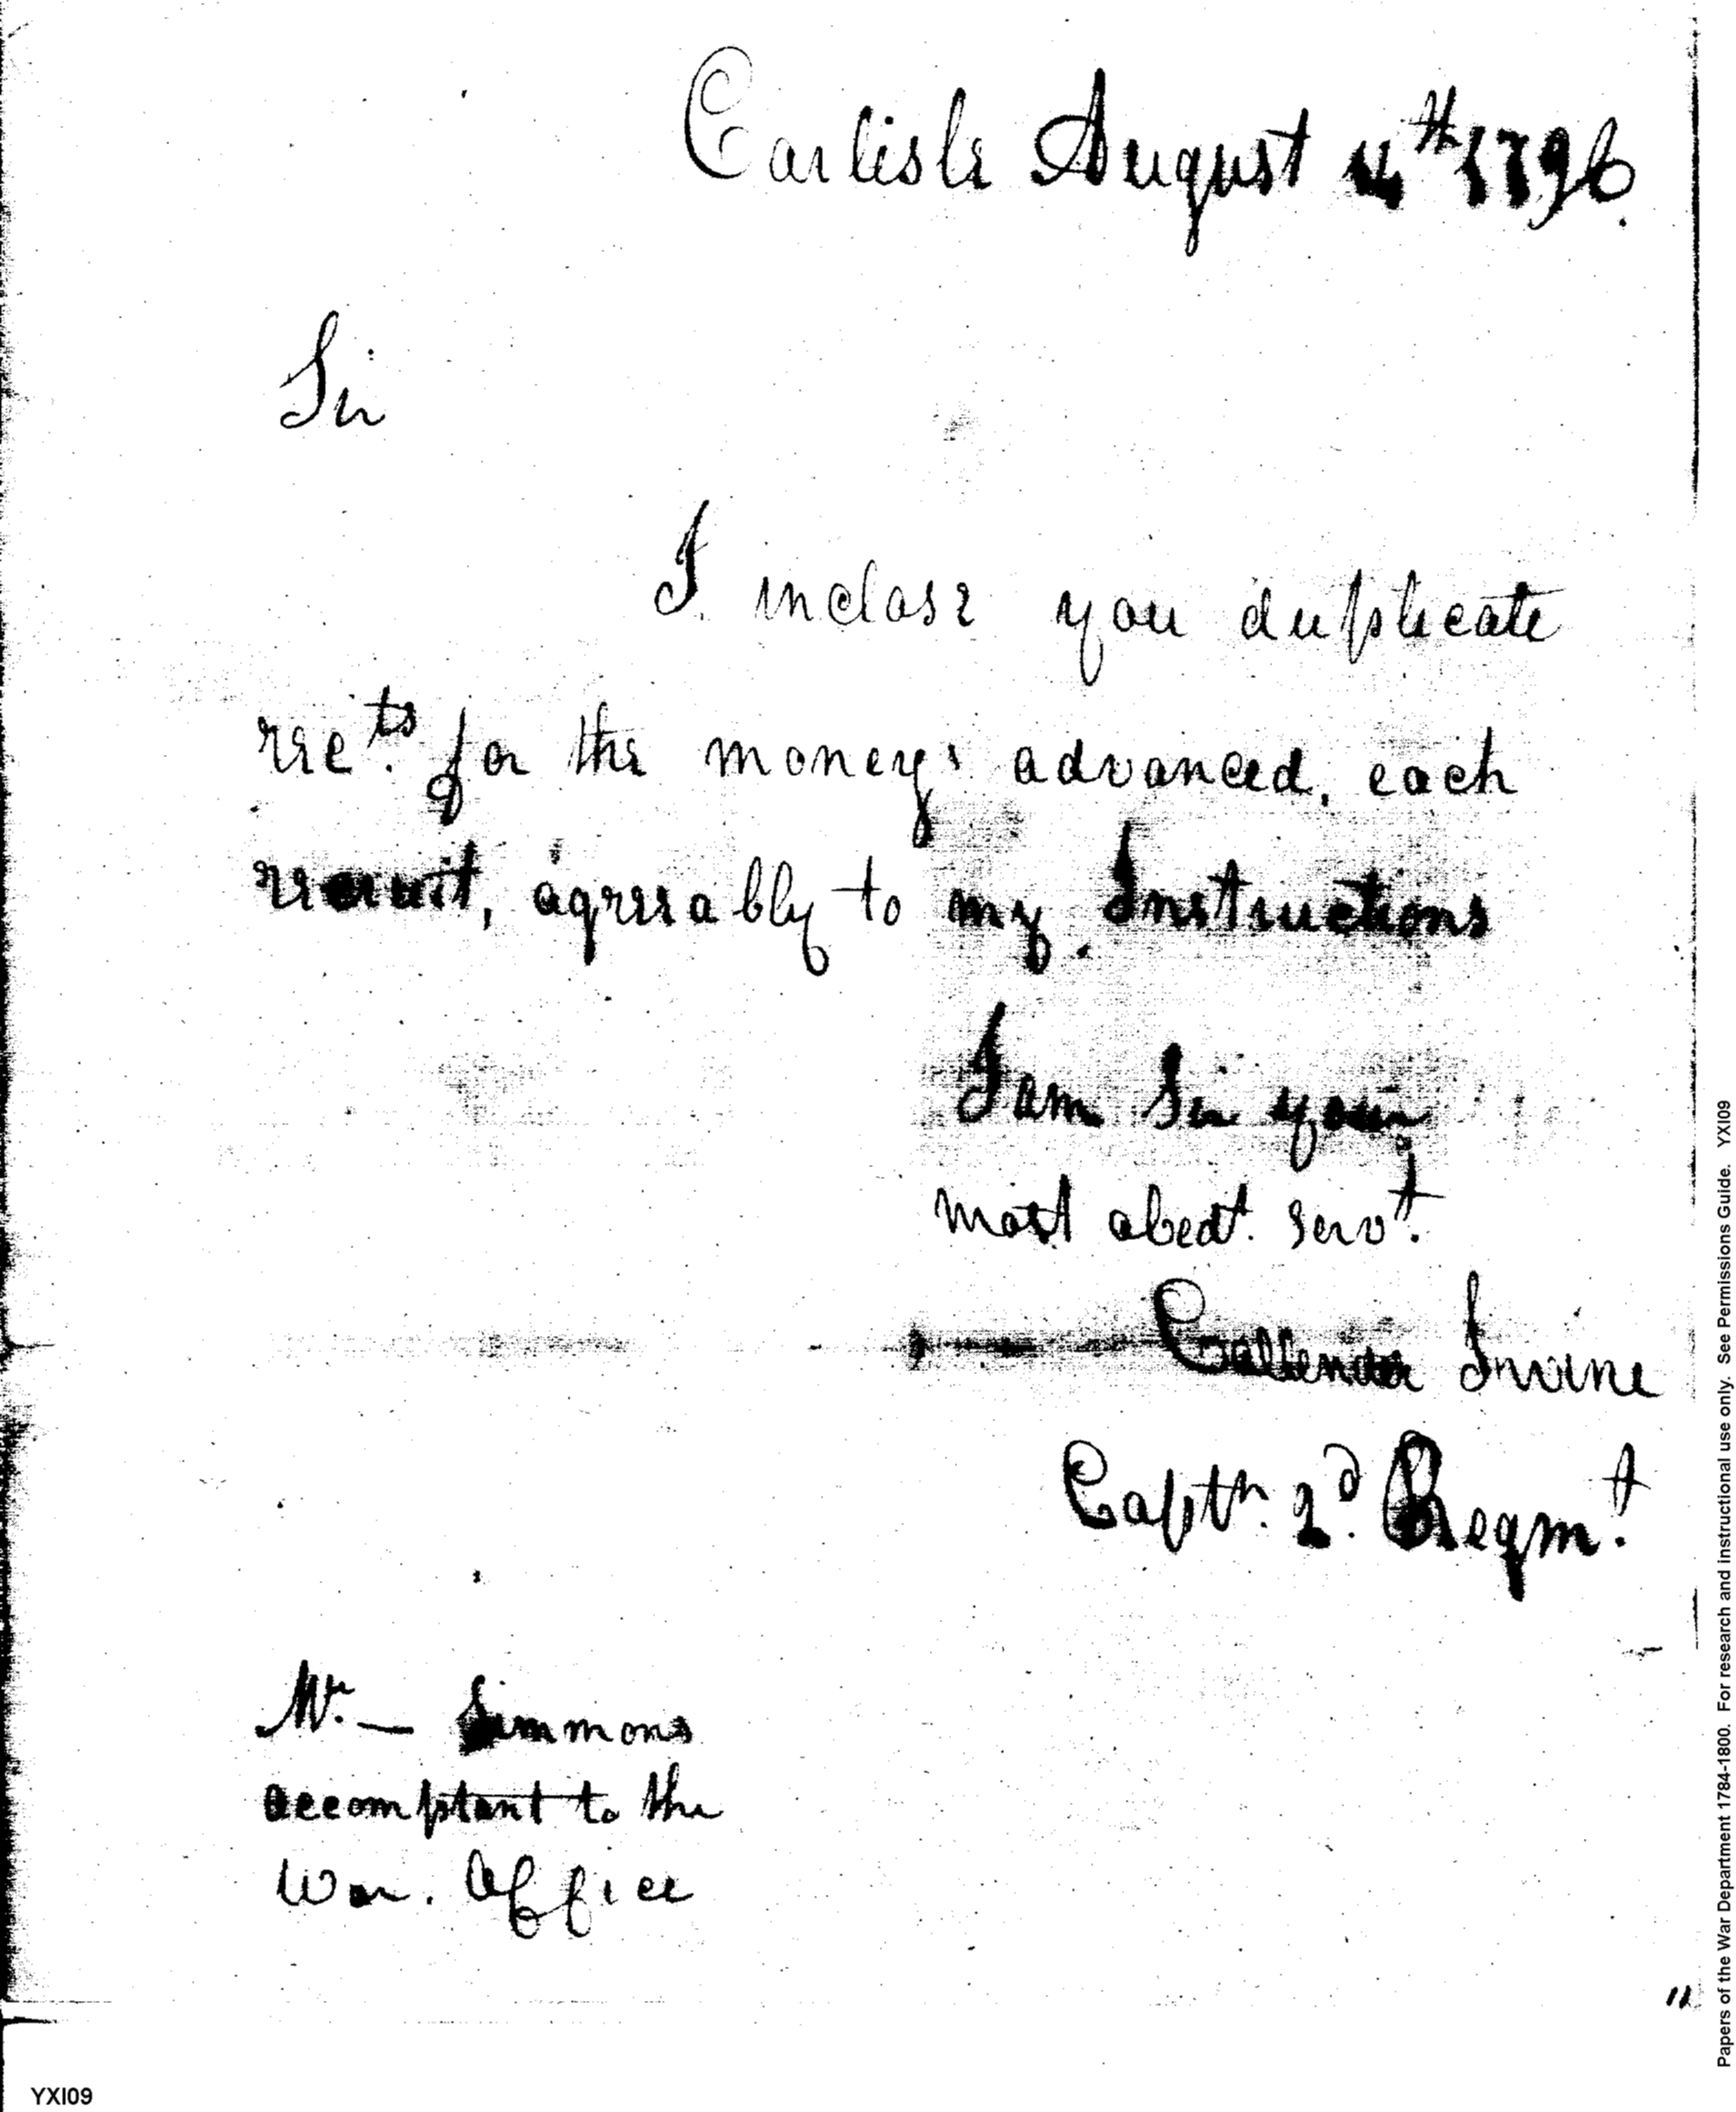 Carlisle August 4th 1796.
Sir
I inclose you duplicate
rects. for the money advanced, each
recruit, agreeably to my Instructions
I am Sir your
most obedt. servt.
Callender Irvine
Captn. 2d. Regmt.
Mr. — Simmons
accomptant to the
War. Office
11
YXI09
Papers of the War Department 1784-1800. For research and instructional use only. See Permissions Guide. YXI09